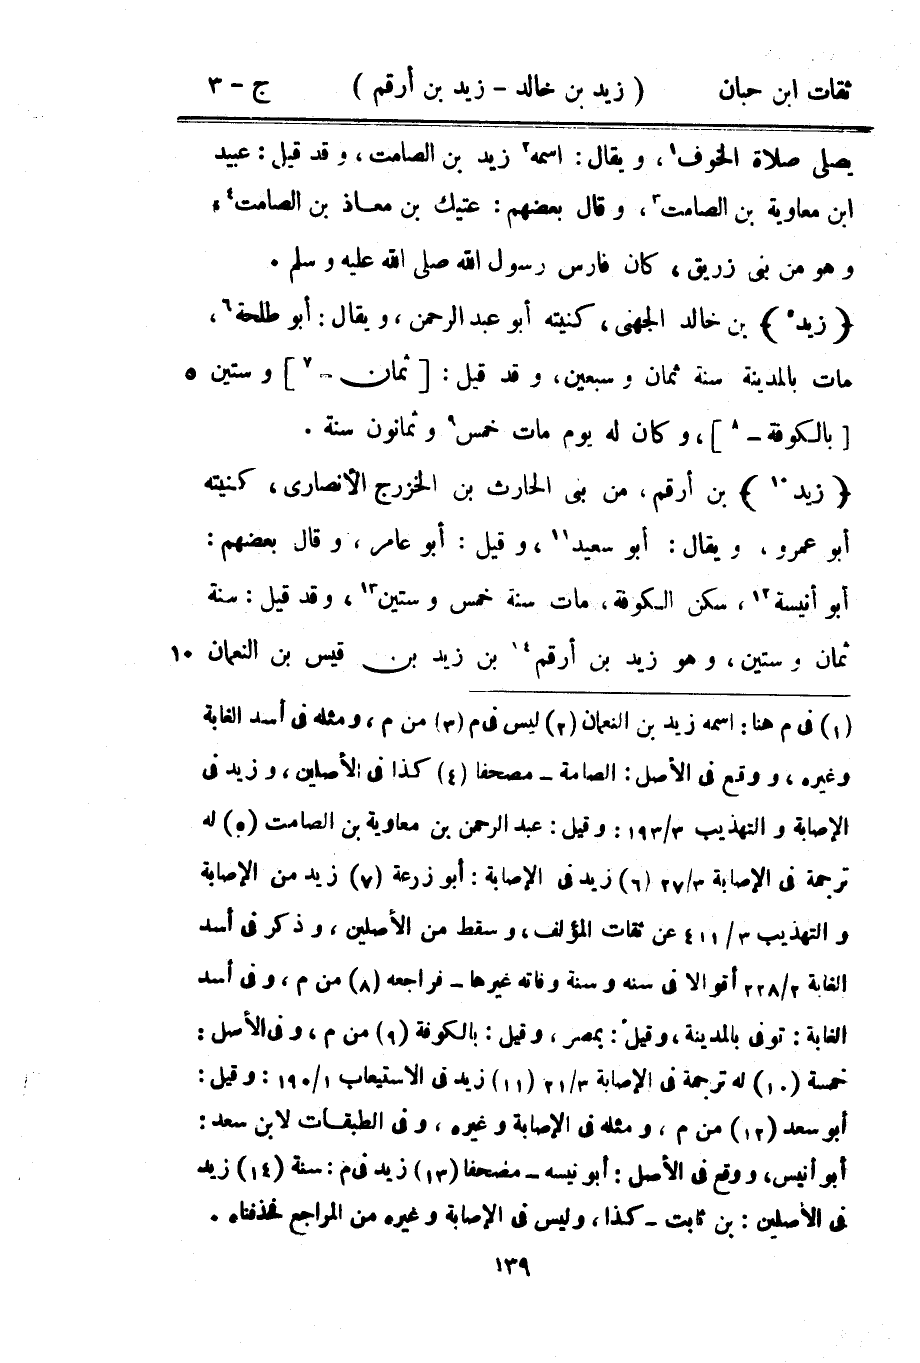 ثقات ابن حبان ( زيد بن خالد - زيد بن أرقم ) ج - ٣
يصلى صلاة الخوف١، و يقال: اسمه٢ زيد بن الصامت، و قد قيل: عبيد
ابن معاوية بن الصامت٣، و قال بعضهم: عتيك بن معاذ بن الصامت٤،
و هو من بنى زريق، كان فارس رسول الله صلى الله عليه و سلم .
﴿ زيد٥ ﴾ بن خالد الجهنى، كنيته أبو عبد الرحمن، و يقال: أبو طلحة٦،
مات بالمدينة سنة ثمان و سبعين، و قد قيل: [ ثمان - ٧ ] و ستين ٥
[ بالكوفة - ٨ ]، و كان له يوم مات خمس٩ و ثمانون سنة .
﴿ زيد١٠ ﴾ بن أرقم، من بنى الحارث بن الخزرج الأنصارى، كنيته
أبو عمرو، و يقال: أبو سعيد١١، و قيل: أبو عامر، و قال بعضهم:
أبو أنيسة١٢، سكن الكوفة، مات سنة خمس و ستين١٣، وقد قيل: سنة
ثمان و ستين، و هو زيد بن أرقم١٤ بن زيد بن قيس بن النعمان ١٠
(١) فى م هنا: اسمه زيد بن النعمان (٢) ليس فى م (٣) من م، و مثله فى أسد الغابة
وغيره، و وقع فى الأصل: الصامة - مصحفا (٤) كذا فى الأصلين، و زيد فى
الإصابة و التهذيب ١٩٣/٣: و قيل: عبد الرحمن بن معاوية بن الصامت (٥) له
ترجمة فى الإصابة ٢٧/٣ (٦) زيد فى الإصابة: أبو زرعة (٧) زيد من الإصابة
و التهذيب ٤١١/٣ عن ثقات المؤلف، و سقط من الأصلين، و ذكر فى أسد
الغابة ٢٢٨/٢ أقوالا فى سنه و سنة وفاته غيرها - فراجعه (٨) من م، و فى أسد
الغابة: توفى بالمدينة، وقيل: بمصر، و قيل: بالكوفة (٩) من م، و فى الأصل:
خمسة (١٠) له ترجمة فى الإصابة ٢١/٣ (١١) زيد فى الاستيعاب ١٩٠/١: و قيل:
أبو سعد (١٢) من م، و مثله فى الإصابة و غيره، و فى الطبقات لابن سعد:
أبو أنيس، و وقع فى الأصل: أبو نيسه - مضحفا (١٣) زيد فى م: سنة (١٤) زيد
فى الأصلين: بن ثابت - كذا، و ليس فى الإصابة و غيره من المراجع فحذفناه .
١٣٩